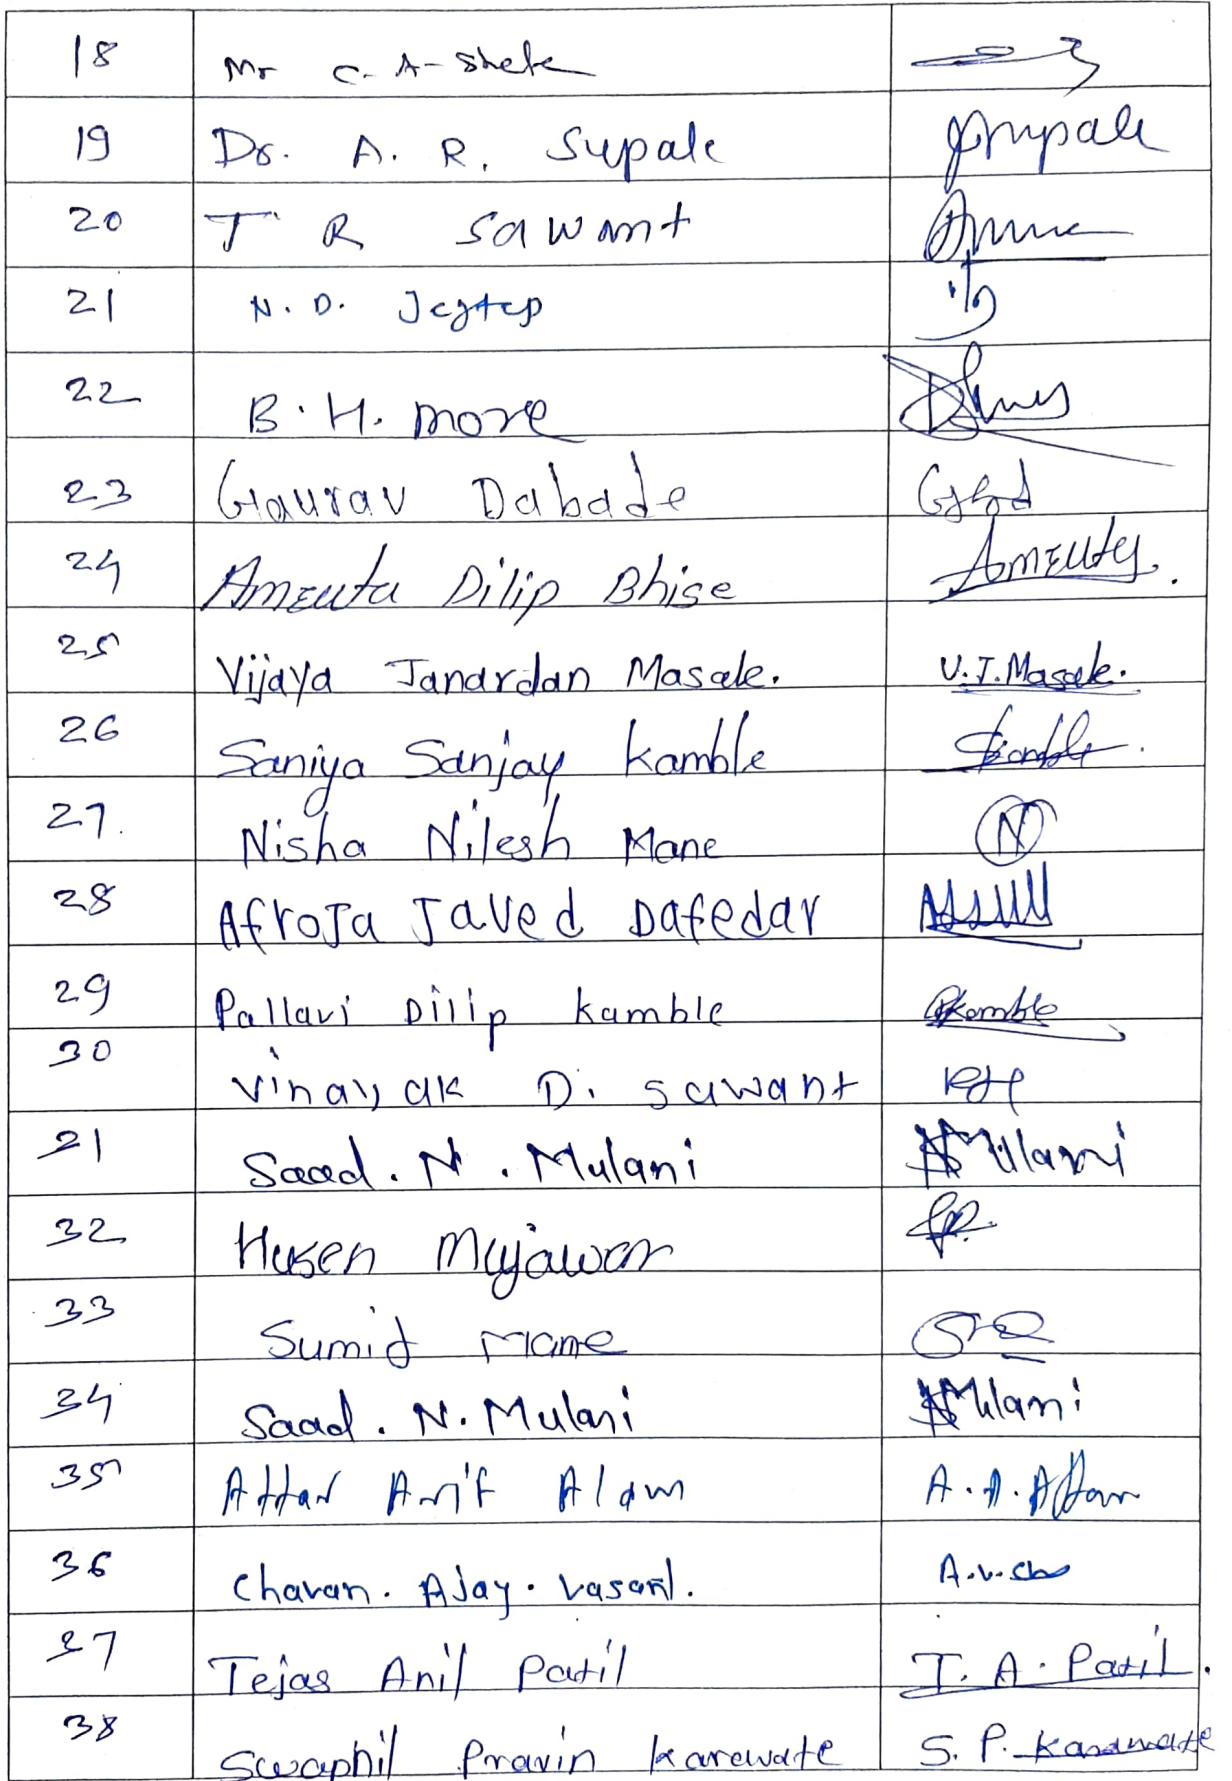 18 Mr C. A. Shete
19 Dr. A. R. Supale
20 T R Sawant
21 N. D. Jagtap
22 B. H. More
23 Gaurav Dabade
24 Amruta Dilip Bhise Amruta.
25 Vijaya Janardan Masale. V.J.Masale.
26 Saniya Sanjay Kamble
27. Nisha Nilesh Mane N
28 Afroja Javed Dafedar
29 Pallavi Dilip Kamble Pkamble
30 Vinayak D. Sawant
21 Saad. N. Mulani Mulani
32 Husen Mujawar
33 Sumit Mane
34 Saad. N. Mulani Mulani
35 Attar Arif Alam A. A. Attar
36 Chavan. Ajay. Vasant. A.V.Ch
37 Tejas Anil Patil T. A. Patil.
38 Swapnil Pravin Karewate S. P. Karawate